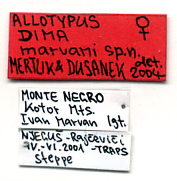 ALLOTYPUS ♀
DIMA
marvani sp.n.
MERTLIK & DUSANEK det.
2004
MONTE NEGRO
Kotor Mts.
Ivan Marvan lgt.
NJEGUŠI-Rajčevići
IV.-VI.2001 -TRAPS
steppe